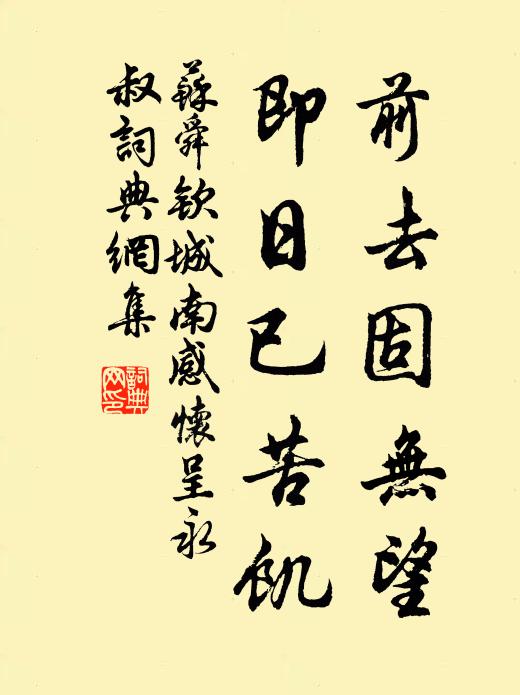 前去固無望
即日已苦飢
蘇舜欽城南感懷呈永
叔詞典網集
詞典
网印